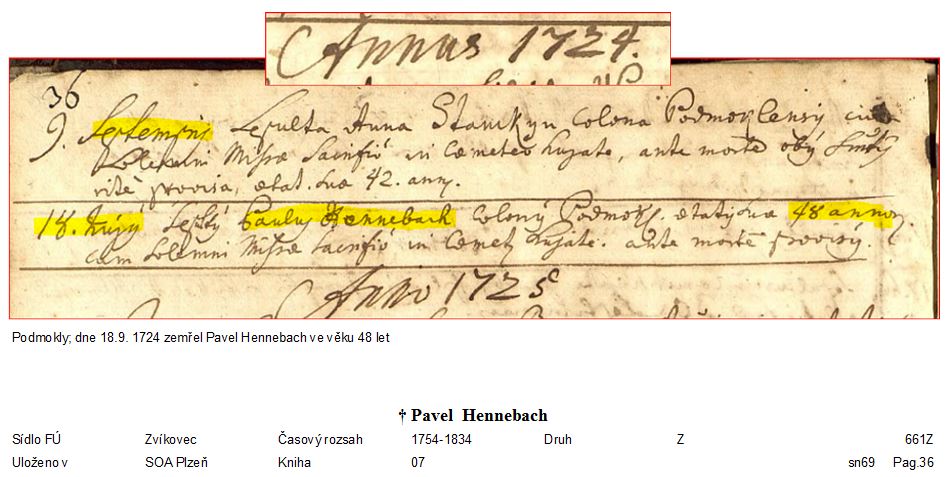 Annus 1724.
36
9. Septembris Sepulta Anna Colona Podmoklensis cum
Solemni Missae Sacrificio in Caemeterio ante mortem
rite provisa, etat. suae 42. ann.
18. hujus Paulus Hennebach Colonus Podmokl. etatis suae 48 annor.
cum Solemni Missae Sacrificio in ante mortem provisus.
Anno 1725
Podmokly; dne 18.9. 1724 zemřel Pavel Hennebach ve věku 48 let
† Pavel Hennebach
Sídlo FÚ Zvíkovec Časový rozsah 1754-1834 Druh Z 661Z
Uloženo v SOA Plzeň Kniha 07 sn69 Pag.36